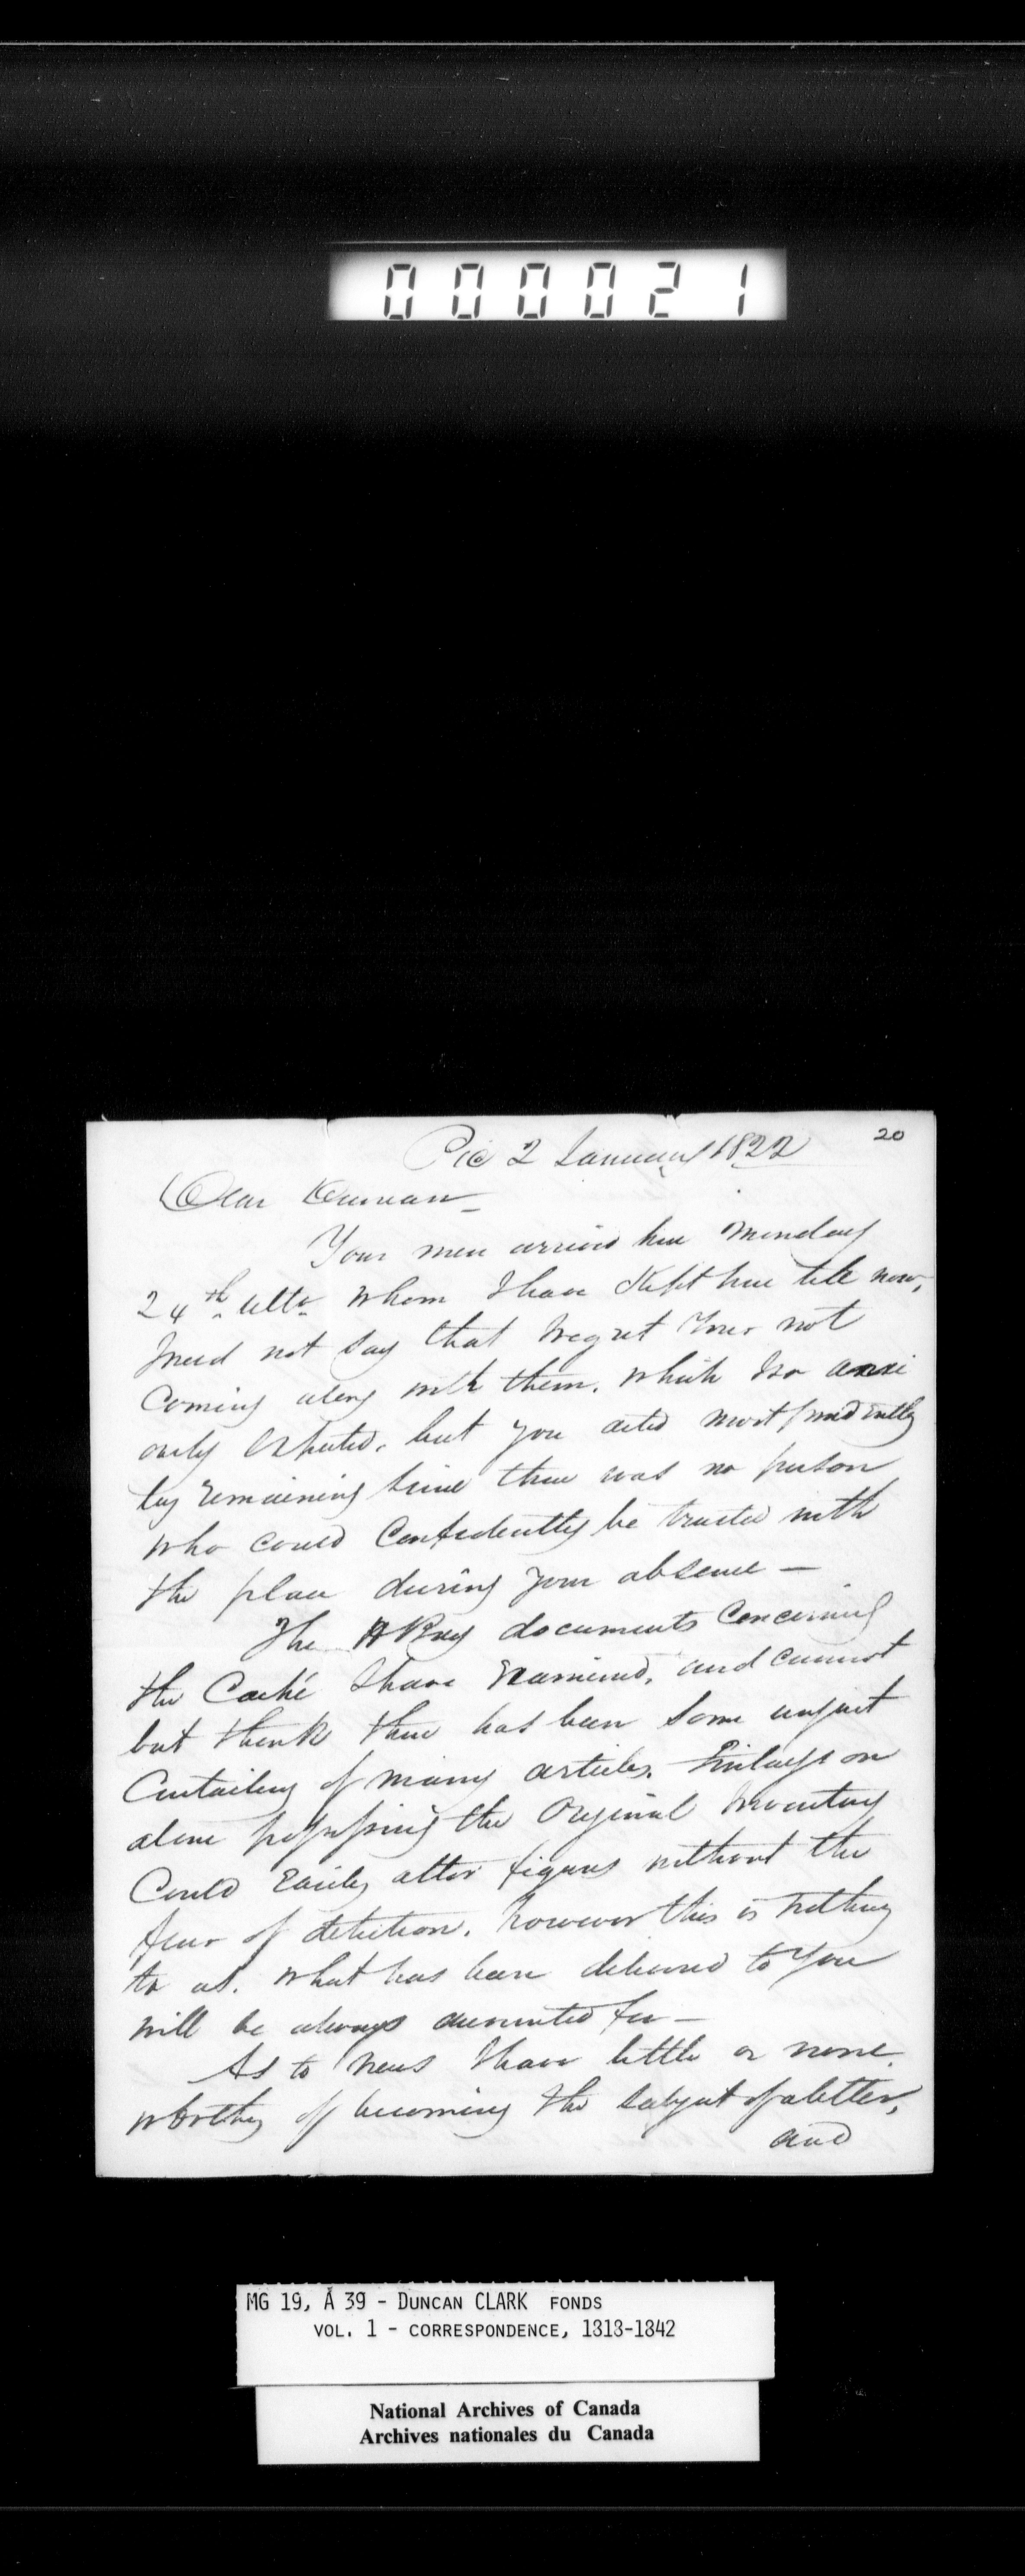 000021
20
Pic 2 January 1822
Dear Duncan
Your men arrived here Monday
24th ulto whom I have Kept here till now,
I need not say that I regret Your not
Coming along with them. which I so anxi
ously Expected. but you acted most prudently
by Remaining since there was no person
who could Confidently be trusted with
the place during your absence —
The HBay documents Concerning
the Caché I have Examined, and cannot
but think there has been some unjust
Curtailing of many articles. Finlayson
alone possessing the Original Inventory
Could Easily alter figures without the
fear of detection. however this is nothing
to us. what has been delivered to You
will be always accounted for —
As to News I have little or none
worthy of becoming the subject of a letter,
and
MG 19, A 39 - DUNCAN CLARK FONDS
VOL. 1 - CORRESPONDENCE, 1813-1842
National Archives of Canada
Archives nationales du Canada